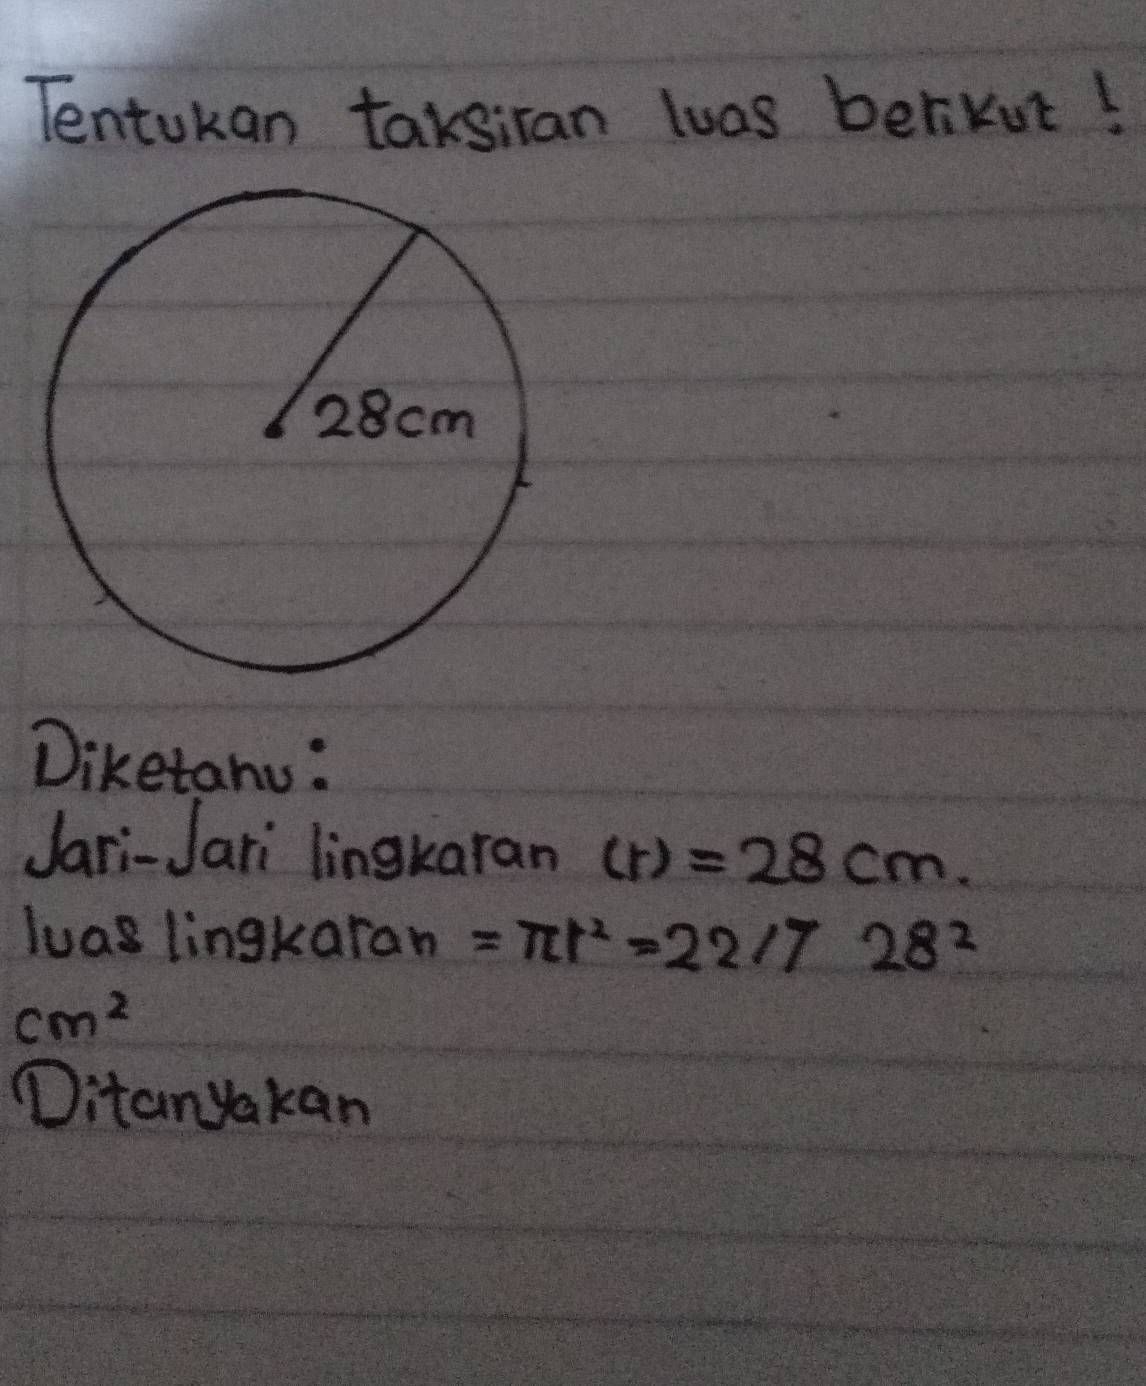 Tentukan taksiran luas berikut!
28cm
Diketahu:
Jari-Jari lingkaran (r) = 28 cm.
luas lingkaran = πr² = 22/7 28²
cm²
Ditanyakan